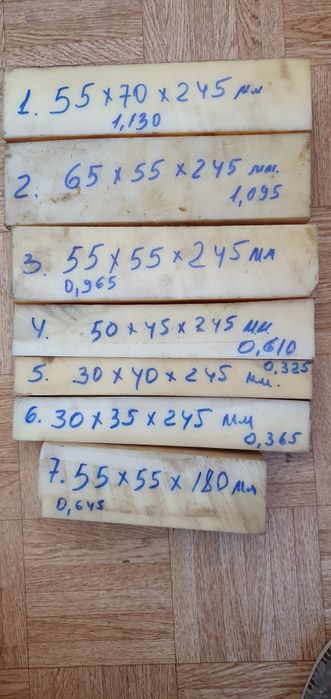 1. 55 x 70 x 245 мм
1,130
2. 65 x 55 x 245 мм.
1,095
3. 55 x 55 x 245 мм
0,965
4. 50 x 45 x 245 мм.
0,610
0,325
5. 30 x 40 x 245 мм.
6. 30 x 35 x 245 мм
0,365
7. 55 x 55 x 180 мм
0,645